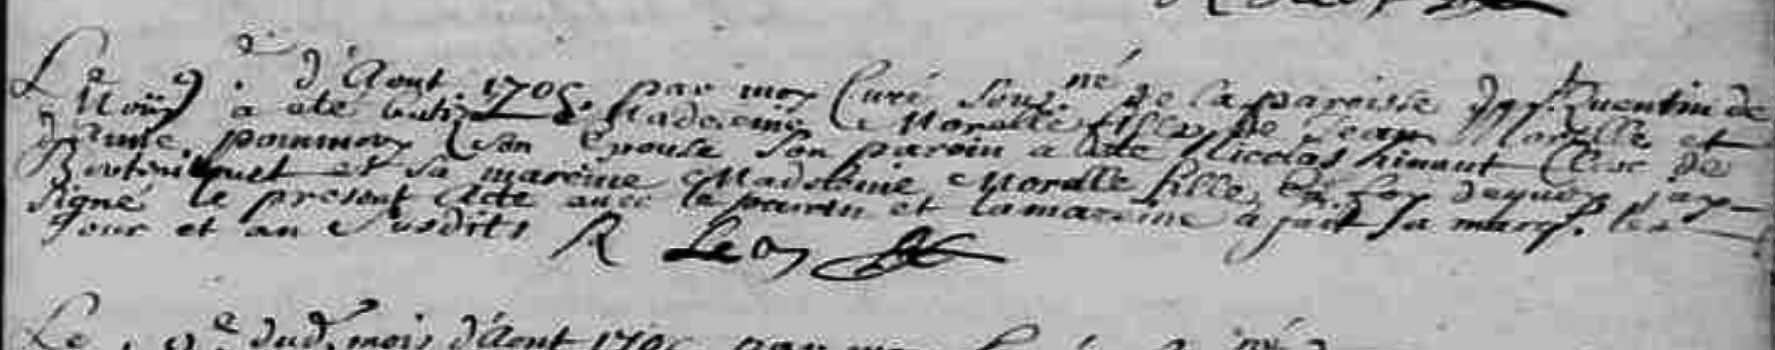 Le 9.e d'Aout 1705. par moy Curé sousné de la paroisse de St. Quentin de
Noüy a eté batizée Madeleine Morelle fille de Jean Morelle et
d'anne pommery son Epouse son parein a eté Nicolas hinaut Clerc de
et sa mareine Madeleine Morelle fille, En foy dequoy j'ay
signé le present Acte avec le parein et la mareine a fait sa marq. les
Jour et an susdits R Leoy
Le 9e dud. mois d'Aout 1705 par moy